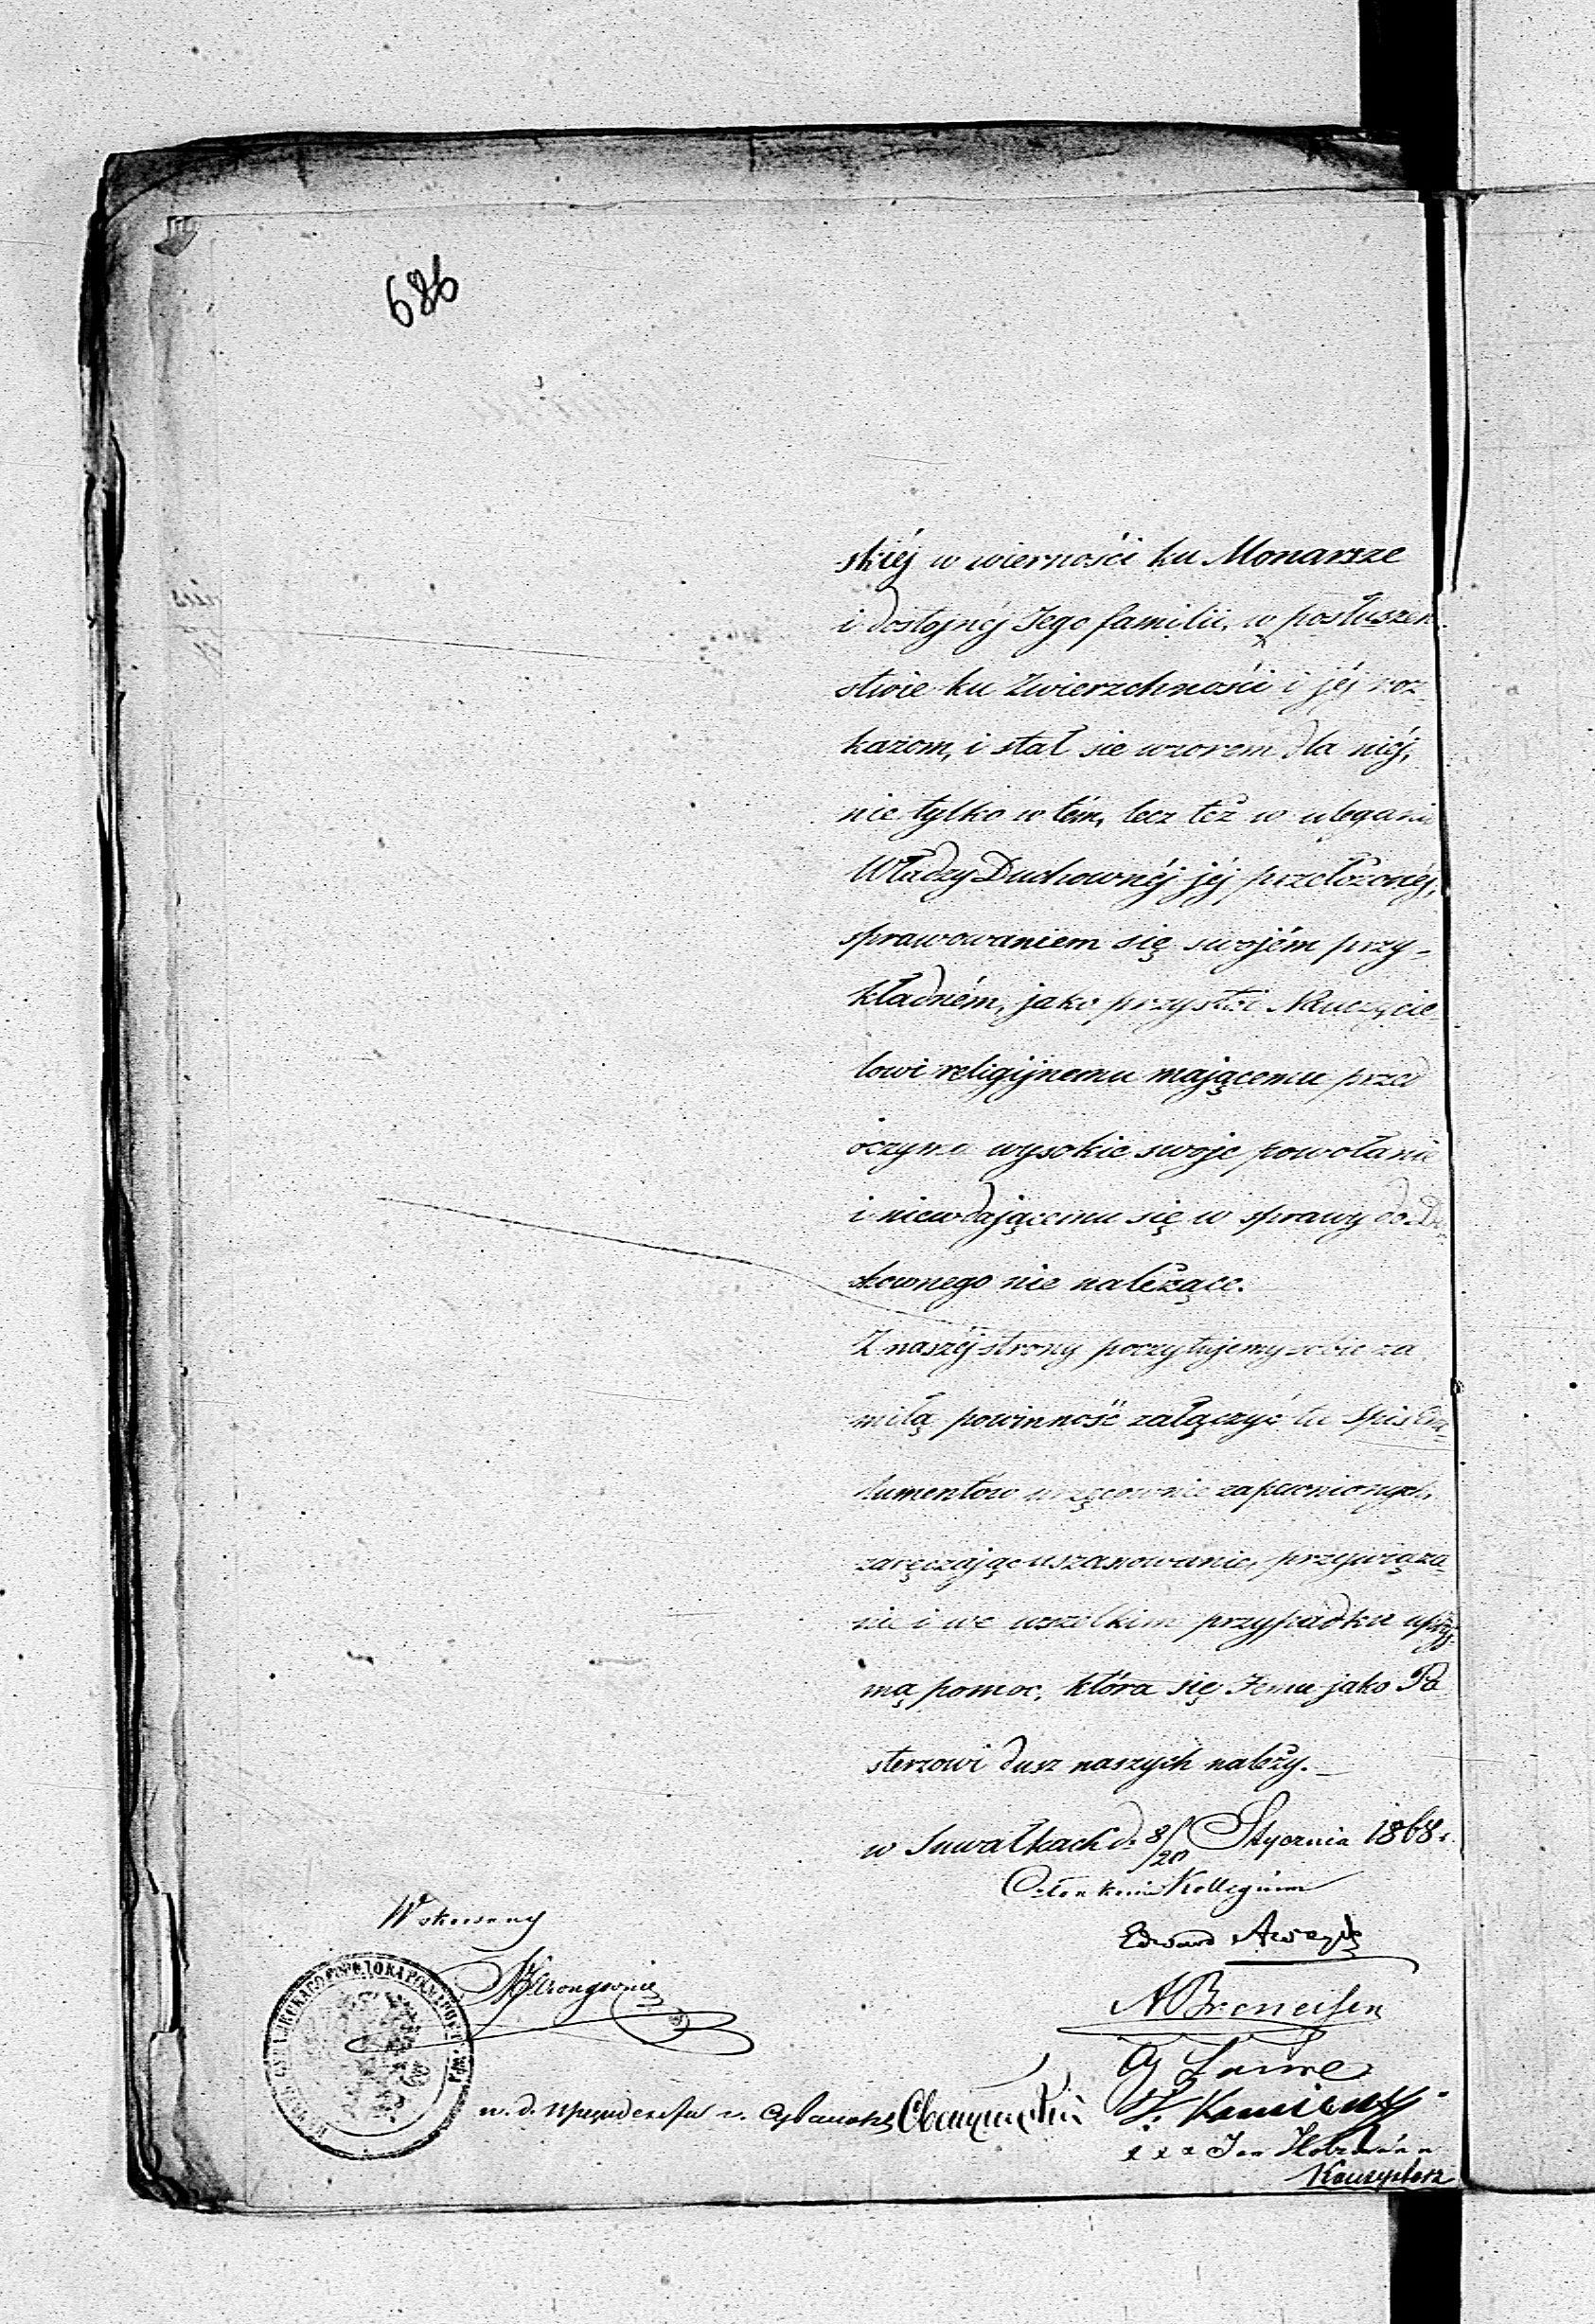 686
skiéj w wierności ku Monarsze
i dostojnéj Jego familii, w posłuszeń-
stwie ku Zwierzchności i jéj roz-
kazom, i stał sie wzorem dla niéj,
nie tylko w tém, lecz też w uleganiu
Władzy Duchownéj jéj przełożonéj,
sprawowaniem się swojém przy-
kładném, jako przystoi Nauczycie-
lowi religijnemu mającemu przed
oczyma wysokie swoje powołanie
i niewdającemu się w sprawy do Du-
chownego nie należące.
Z naszéj strony poczytujemy sobie za
miłą powinność załączyć tu Spis
lumentów urzędownie zapewnionych,
zaręczając uszanowanie, przywiąza-
nie i we wszelkim przypadku uprzej-
mą pomoc, która się Jemu jako Pa-
sterzowi dusz naszych należy.
w Suwałkach d. 8/20 Stycznia 1868 r.
Członkowie Kollegium
Edward
A Breneisen
F. Kamieński
x x x Jan